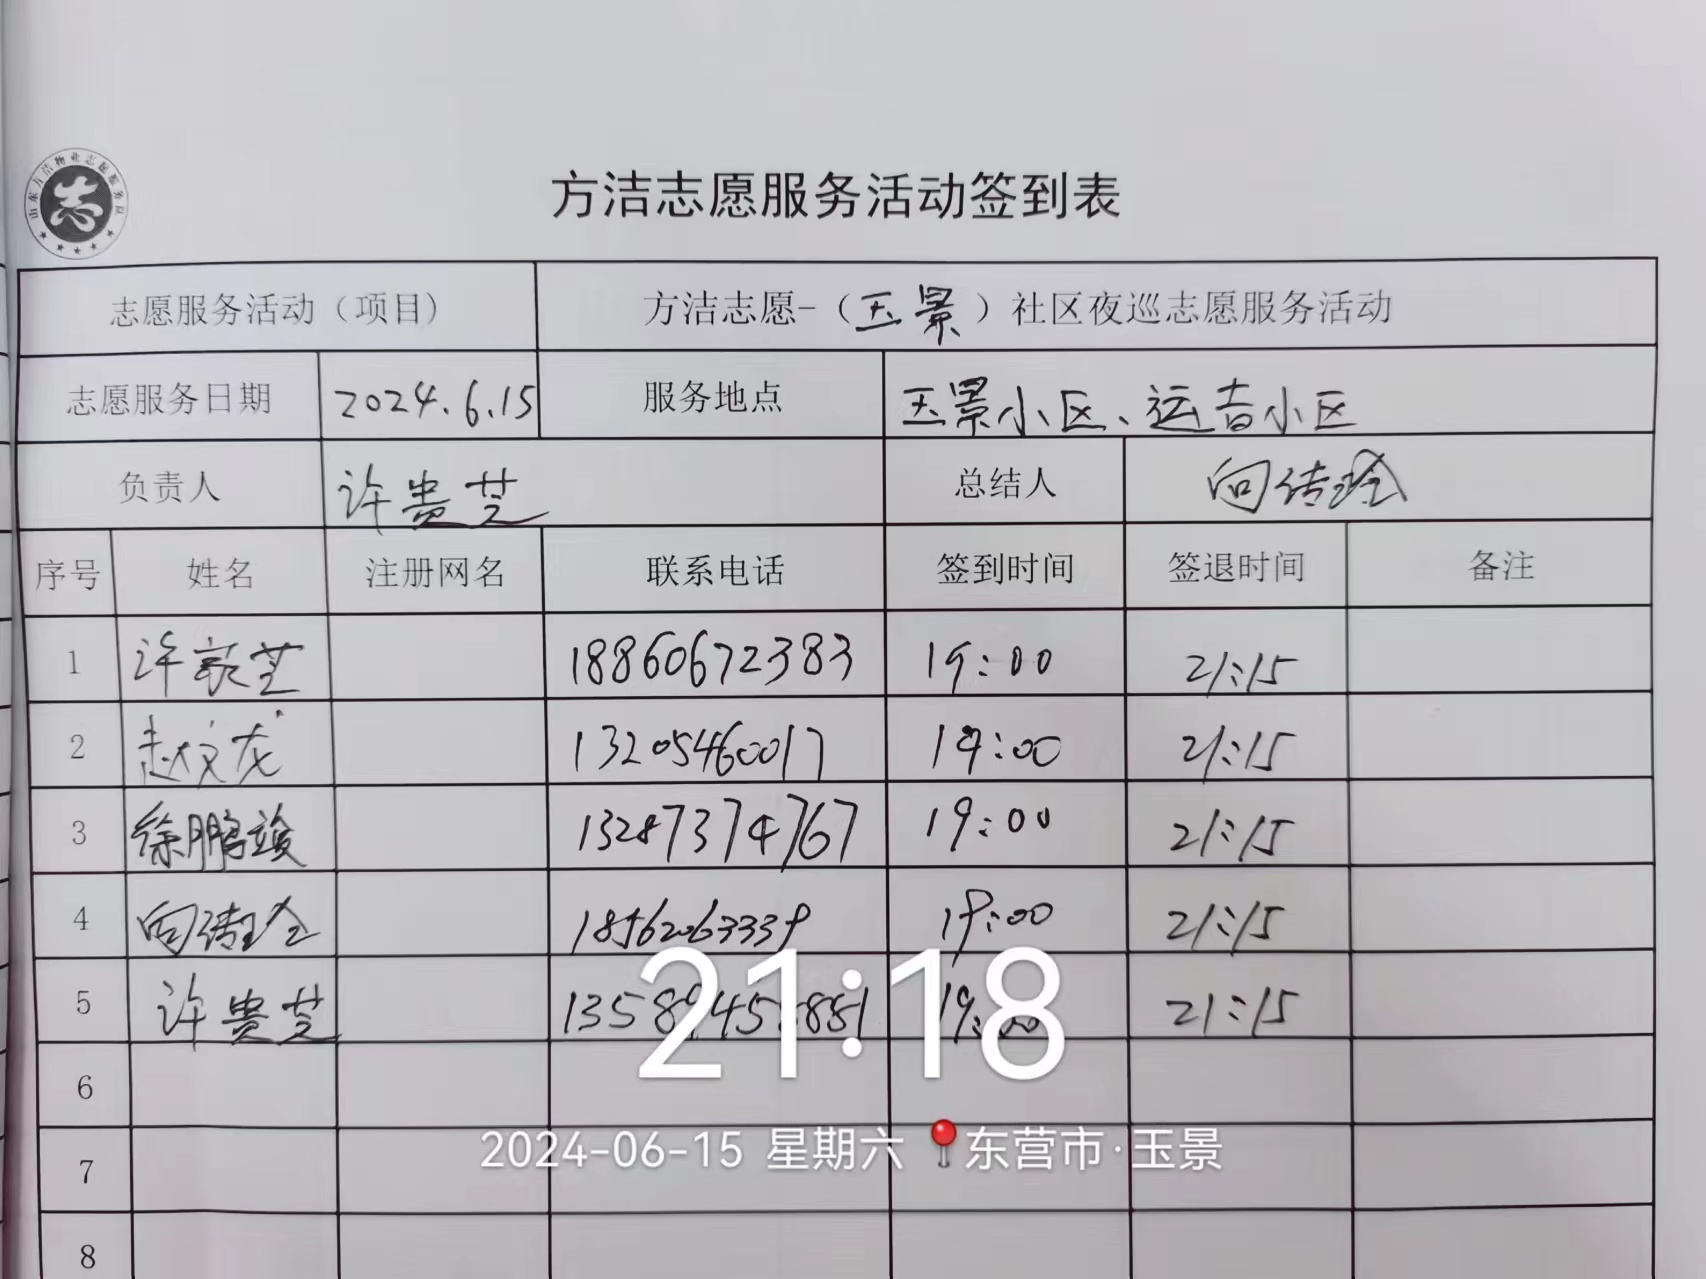 山东方洁物业志愿服务队
志
方洁志愿服务活动签到表
志愿服务活动（项目） 方洁志愿-（玉景）社区夜巡志愿服务活动
志愿服务日期 2024.6.15 服务地点 玉景小区、运吉小区
负责人 许贵芝 总结人 向传玲
序号 姓名 注册网名 联系电话 签到时间 签退时间 备注
1 许 芝 18860672383 19:00 21:15
2 赵文龙 13205460017 19:00 21:15
3 徐鹏竣 13287374767 19:00 21:15
4 向传玲 18562063339 19:00 21:15
5 许贵芝 19:00 21:15
21:18
6
2024-06-15 星期六 东营市·玉景
7
8